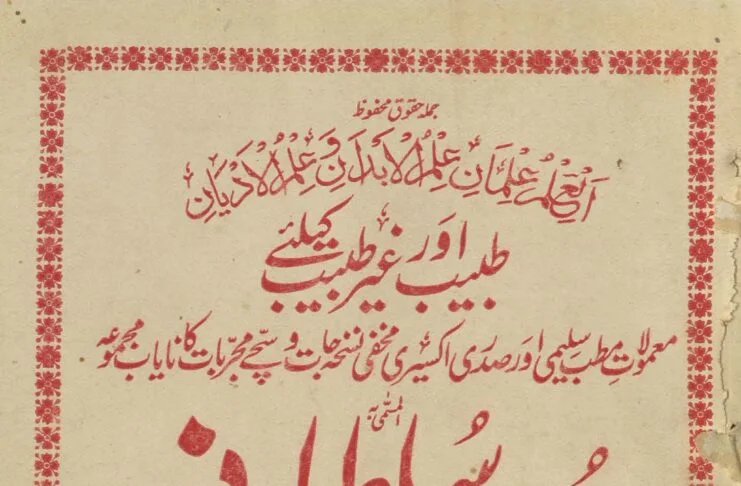 جملہ حقوق محفوظ
اَلْعِلْمُ عِلْمَانِ عِلْمُ الْاَبْدَانِ وَ عِلْمُ الْاَدْیَانِ
طبیب اور غیر طبیب کیلئے
معمولاتِ مطب سلیمی اور صدری اکسیری مخفی نسخہ جات و سچے مجربات کا نایاب مجموعہ
المسمّٰی بہ